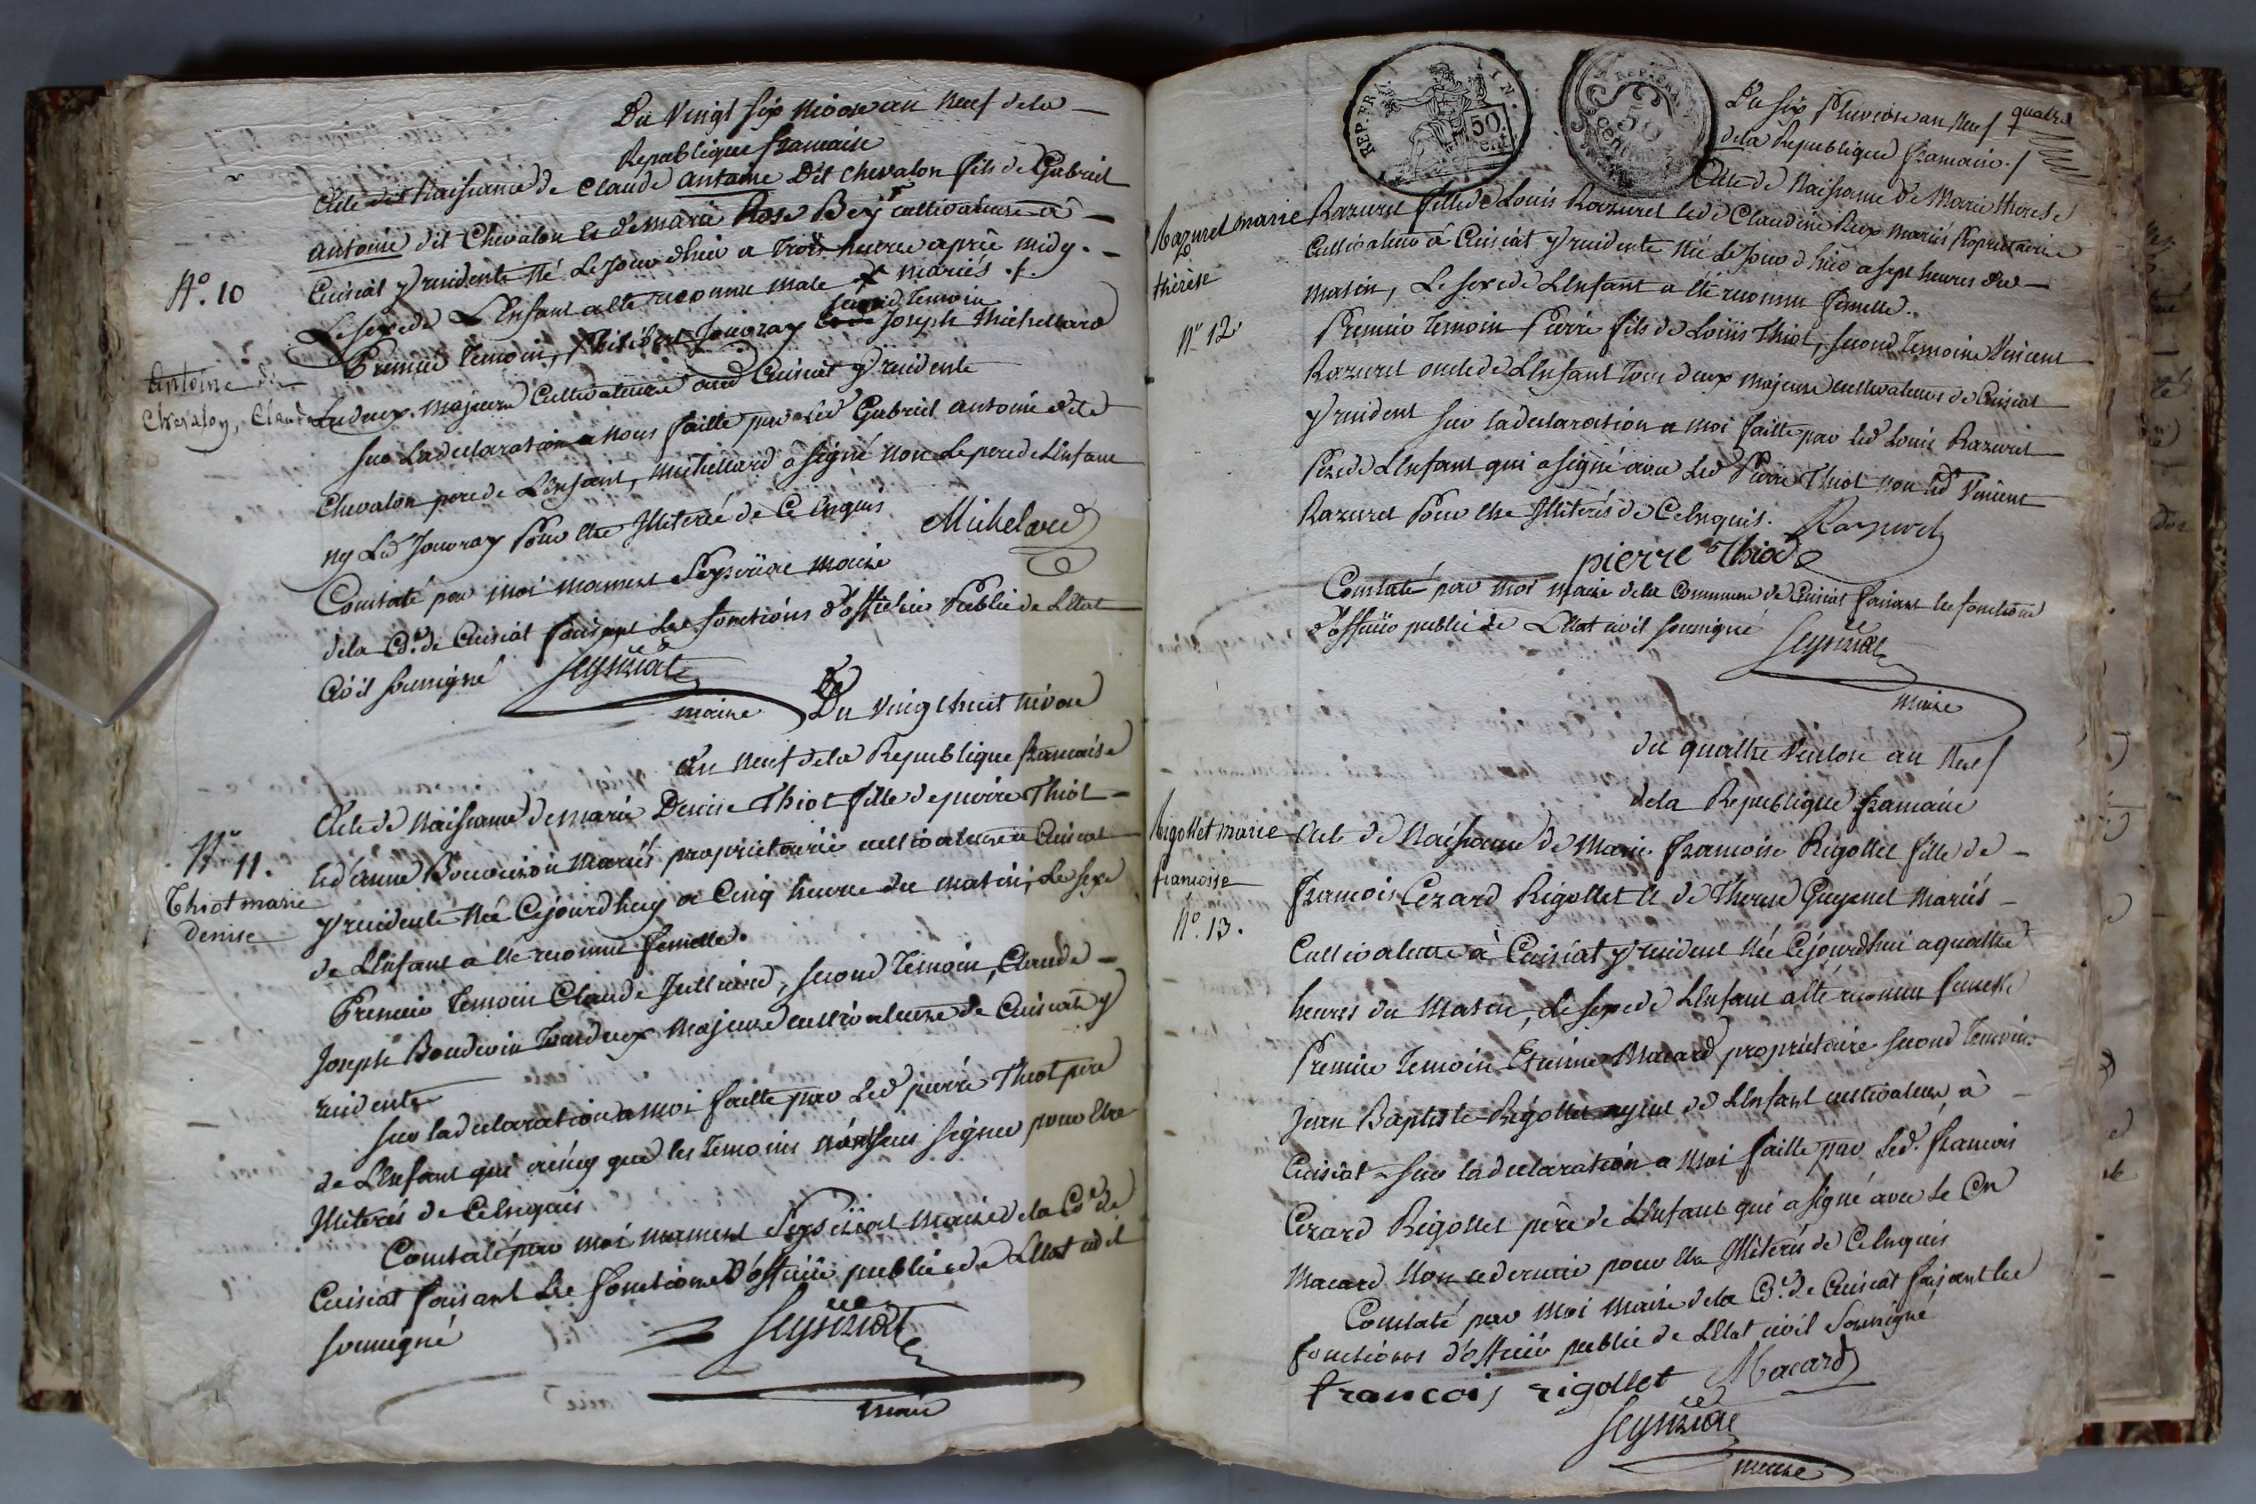 Du Vingt six nivose an neuf dela
Republique francaise
Acte de Naissance de Claude antoine Dit chevalon fils de Gabriel
antoine dit Chevalon et de marie Rose Bey cultivateurs a
Cuisiat y residents Né Le Jour dhier a Trois heures après midy.
Le sexe de L'Enfant a été reconnu male mariés
Premier temoin, Philibert Jouvray second temoin Joseph Michellard
tous deux majeurs Cultivateurs aud Cuisiat y residents
sur La declaration a nous faitte par led Gabriel antoine dit
Chevalon pere de L'Enfant, Michellard a signé non Le pere de L'Enfant
ny Led Jouvray Pour etre Illiterés de Ce Enquis
Michelard
Constaté par moi mament Seyssiriat maire
dela Cne. de Cuisiat faisant Les fonctions d'officier Public de L'Etat
Civil soussigné
maire
N°. 10
Antoine dit
Chevalon, Claude
Du Vingt huit nivose
an neuf dela Republique francaise
Acte de Naissance de marie Denise Thiot fille de pierre Thiot
et d'anne mariés proprietaires cultivateurs a Cuisiat
y residents Née Cejourdhuy a Cinq heures du matin, Le sexe
de L'Enfant a été reconnu femelle.
Premier Temoin Claude Julliard, second Temoin, Claude
Joseph Boudvoin Tous deux Majeurs cultivateurs de Cuisiat y
residents
sur la declaration a moi faitte par Led pierre Thiot pere
de L'Enfant qui ainsy que les Temoins n'ont sceus signer pour Etre
Illiterés de Ce Enquis
Constaté par moi mament Seyssiriat Maire dela Cne de
Cuisiat faisant Les fonctions D'officier public de L'Etat civil
soussigné
maire
N° 11.
Thiot marie
denise
quatre
Du six Pluviose an Neuf
dela Republique francaise
Acte de Naissance de Marie therese
Razurel fille de Louis Razurel et de Claudine Roux mariés Proprietaires
Cultivateurs à Cuisiat y residents Née Le Jour d'hier a sept heures du
Matin, Le sexe de L'Enfant a été reconnu femelle.
Premier Temoin Pierre fils de Loüis Thiot, second Temoin Vincent
Razurel oncle de L'Enfant Tous deux majeurs cultivateurs de Cuisiat
y resident sur la declaration a moi faitte par led Louis Razurel
Pere de L'Enfant qui a signé avec Led Pierre Thiot non led Vincent
Razurel Pour etre Illiterés de Ce Enquis.
Razurel
pierre Thiot
Constaté par moi maire dela Commune de Cuisiat faisant les fonctions
d'officier public de L'Etat civil soussigné
maire
Razurel marie
thérèse
N° 12
REP. FRA.
50
cent.
REP. FRA.
50
centimes
du quattre Ventose an Neuf
dela Republique francaise
Acte de Naissance de Marie francoise Rigollet fille de
francois Cezard Rigollet et de Therese Guyenet Mariés
Cultivateurs à Cuisiat y resident Née Cejourdhui a quattre
heures du Matin, Le sexe de L'Enfant a été reconnu femelle
Premier Temoin Etienne Macard proprietaire second Temoin
Jean Baptiste Rigollet ayeul de L'Enfant cultivateur à
Cuisiat sur la declaration a moi faitte par Led. francois
Cezard Rigollet père de L'Enfant qui a signé avec Le Cn
Macard Non ce dernier pour etre Illiterés de Ce Enquis
Constaté par moi Maire dela Cne. de Cuisiat faisant les
fonctions d'officier public de L'Etat civil Soussigné
francois rigollet Macard
maire
Rigollet marie
francoise
N°. 13.